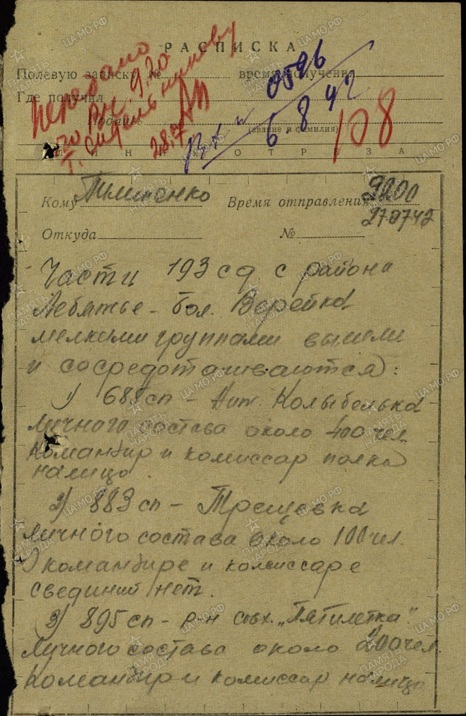 РАСПИСКА
Полевую записку № время получения
Где получил
передано
9.20
28.7
Вх. № 0596
6 8 42
108
(звание и фамилия)
ЛИНИЯ ОТРЕЗА
Кому Тимошенко Время отправления 9200
Откуда № 270742
Части 193 сд с района
Лебяжье - Бол. Верейка
мелкими группами вышли
и сосредотачиваются:
1) 688 сп - Ант. Колыбелька
личного состава около 400 чел.
Командир и комиссар полка
налицо.
2) 883 сп - Трещевка
личного состава около 100 чел.
О командире и комиссаре
свединий нет.
3) 895 сп - р-н свх. „Пятилетка"
личного состава около 200 чел.
Командир и комиссар налицо